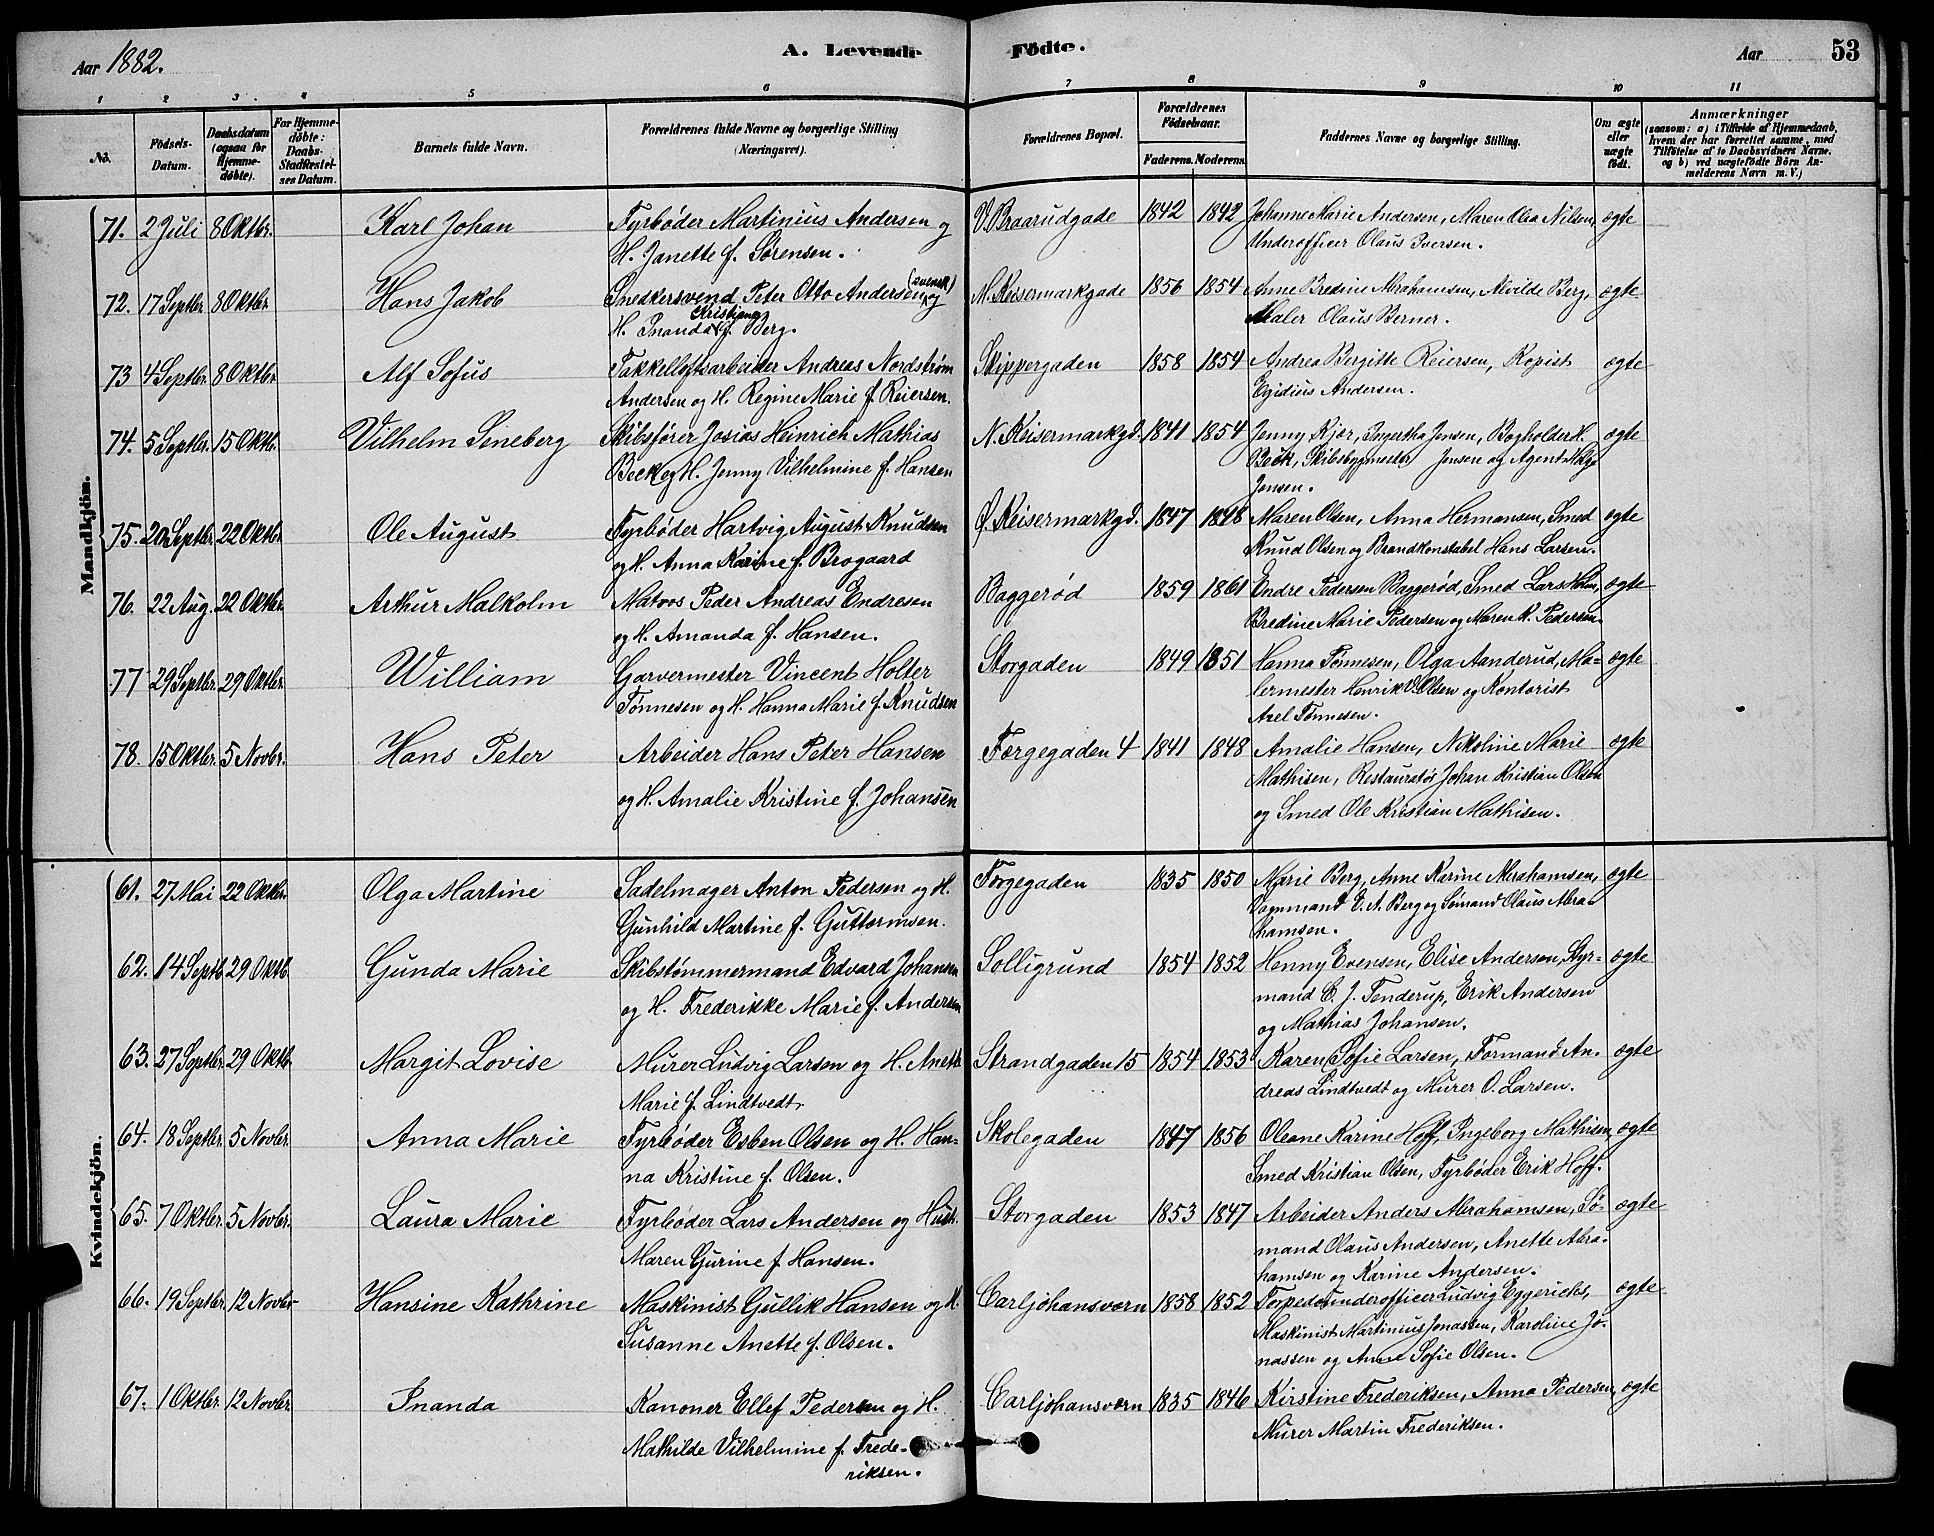 Aar 1882.
A. Levende
Födte.
Aar
53
1 2 3 4 5 6 7 8 9 10 11
No.
Födsels-Datum.
Daabsdatum (ogsaa for Hjemme-döbte).
For Hjemme-döbte: Daabs-Stadfæstel-ses Datum.
Barnets fulde Navn.
Forældrenes fulde Navne og borgerlige Stilling
(Næringsvei).
Forældrenes Bopæl.
Forældrenes Födselsaar.
Faderens. Moderens.
Faddernes Navne og borgerlige Stilling.
Om ægte eller uægte født.
Anmærkninger
(saasom: a) i Tilfælde af Hjemmedaab,
hvem der har forrettet samme, med
Tilföielse af to Daabsvidners Navne,
og b) ved uægtefödte Börn An-
melderens Navn m. V.)
Mandkjön.
71. 2 Juli 8 Oktbr. Karl Johan Fyrbøder Martinius Andersen og V. Braarudgade 1842 1842 Johanne Marie Andersen, Maren Olea Nilsen, ægte
H. Janette f. Sørensen. Underofficer Olaus Iversen.
72. 17 Septbr. 8 Oktbr. Hans Jakob Snedkersvend Peter Otto Andersen (svensk) og N. Keisermarkgade 1856 1854 Anne Bredine Abrahamsen, Alvilde Berg, ægte
H. Inanda Kristiane f. Berg. Maler Olaus Berner.
73 4 Septbr. 8 Oktbr. Alf Sofus Takkelloftsarbeider Andreas Nordstrøm Skippergaden 1858 1854 Andrea Bergitte Reiersen, Kopist ægte
Andersen og H. Regine Marie f. Reiersen. Egidius Andersen.
74. 5 Septbr. 15 Oktb. Vilhelm Sineberg Skibsfører Josias Heinrich Mathias N. Keisermarkgd. 1841 1854 Jenny Kjær, Ingertha Jensen, Bogholder H. ægte
Beck og H. Jenny Vilhelmine f. Hansen Beck, Skibsbygmester Jensen og Agent Helge
Jensen.
75. 20 Septbr. 22 Oktbr. Ole August Fyrbøder Hartvig August Knudsen Ø. Keisermarkgd. 1847 1848 Maren Olsen, Anna Hermansen, Smed ægte
og H. Anna Karine f. Brogaard Knud Olsen og Brandkonstabel Hans Larsen.
76. 22 Aug. 22 Oktbr. Arthur Malkolm Matros Peder Andreas Endresen Baggerød 1859 1861 Endre Pedersen Baggerød, Smed Lars Holm, ægte
og H. Amanda f. Hansen. Bredine Marie Pedersen og Maren K. Pedersen.
77 29 Septbr. 29 Oktbr. William Garvermester Vincent Holter Storgaden 1849 1851 Hanna Tønnesen, Olga Aanderud, Ma- ægte
Tønnesen og H. Hanna Marie f. Knudsen lermester Henrik V. Olsen og Kontorist
Axel Tønnesen.
78. 15 Oktbr. 5 Novbr. Hans Peter Arbeider Hans Peter Hansen Færgegaden 4 1841 1848 Amalie Hansen, Nikoline Marie ægte
og H. Amalie Kristine f. Johansen Mathisen, Restauratør Johan Kristian Olsen
og Smed Ole Kristian Mathisen.
Kvindekjön.
61. 27 Mai 22 Oktbr. Olga Martine Sadelmager Anton Pedersen og H. Færgegaden 1835 1850 Marie Berg, Anne Karine Abrahamsen, ægte
Gunhild Martine f. Guttormsen. Vognmand E. A. Berg og Sømand Olaus Abra-
hamsen.
62. 14 Septb. 29 Oktb. Gunda Marie Skibstømmermand Edvard Johansen Solligrund 1854 1852 Henny Evensen, Elise Andersen, Styr- ægte
og H. Frederikke Marie f. Andersen mand C. J. Tenderup, Erik Andersen
og Mathias Johansen.
63. 27 Septbr. 29 Oktb. Margit Lovise Murer Ludvig Larsen og H. Anette Strandgaden 15 1854 1853 Karen Sofie Larsen, Formand An- ægte
Marie f. Lindtvedt dreas Lindtvedt og Murer O. Larsen.
64. 18 Septbr. 5 Novbr. Anna Marie Fyrbøder Esben Olsen og H. Han- Skolegaden 1847 1856 Oleane Karine Hoff, Ingeborg Mathisen, ægte
na Kristine f. Olsen. Smed Kristian Olsen, Fyrbøder Erik Hoff.
65. 7 Oktbr. 5 Novbr. Laura Marie Fyrbøder Lars Andersen og Hust. Storgaden 1853 1847 Arbeider Anders Abrahamsen, Sø- ægte
Maren Gurine f. Hansen. mand Olaus Andersen, Anette Abra-
hamsen og Karine Andersen.
66. 19 Septbr. 12 Novbr. Hansine Kathrine Maskinist Gullik Hansen og H. Carljohansværn 1858 1852 Torpedounderofficer Ludvig Eggerichs, ægte
Susanne Anette f. Olsen. Maskinist Martinius Jonassen, Karoline Jo-
nassen og Anne Sofie Olsen.
67. 1 Oktbr. 12 Novbr. Inanda Kanoner Ellef Pedersen og H. Carljohansværn 1835 1846 Kirstine Frederiksen, Anna Pedersen, ægte
Mathilde Vilhelmine f. Frede- Murer Martin Frederiksen.
riksen.